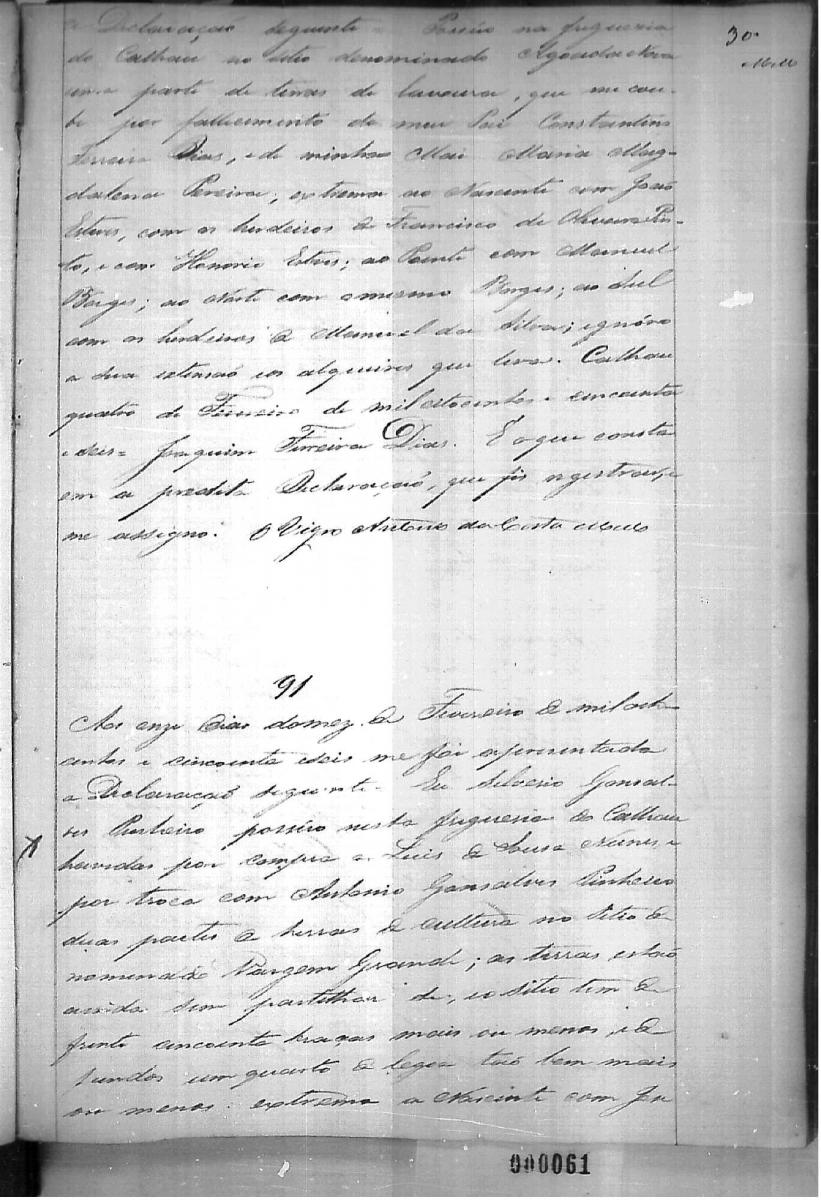 30
Mello
a Declaração seguinte = Possuo na freguezia
do Calhau no sitio denominado Agoada Nova
uma parte de terras de lavoura, que me cou-
be por fallecimento de meu Pai Constantino
Ferreira Dias, e de minha Mai Maria Mag-
dalena Pereira; extrema ao Nascente com João
Esteves, com os herdeiros de Francisco de Oliveira Pin-
to, e com Honorio Esteves; ao Poente com Manuel
Borges; ao Norte com o mesmo Borges; ao Sul
com os herdeiros de Manuel da Silva; ignóro
a sua extensaõ e os alqueires que leva. Calhau
quatro de Fevereiro de mil oitocentos e cincoenta
e seis = Joaquim Ferreira Dias. E o que consta
em a predita Declaraçaõ, que fis registrar, e
me assigno. O Vigro Antonio da Costa Mello
91
Aos onze dias do mez de Fevereiro de mil oito
centos e cincoenta e seis me foi apresentada
a Declaraçaõ seguinte = Eu Silverio Gonsal-
ves Pinheiro possúo nesta freguesia do Calhau
havidas por compra a Luis de Sousa Nunes e
por troca com Antonio Gonsalves Pinheiro
duas partes de terras de cultura no sitio de
nominado Vargem Grande; as terras estaõ
ainda sem partilhar se, e o sitio tem de
frente cincoenta braças mais ou menos, e de
fundos um quarto de legoa taõ bem mais
ou menos. extrema a Nascente com Joa
000061